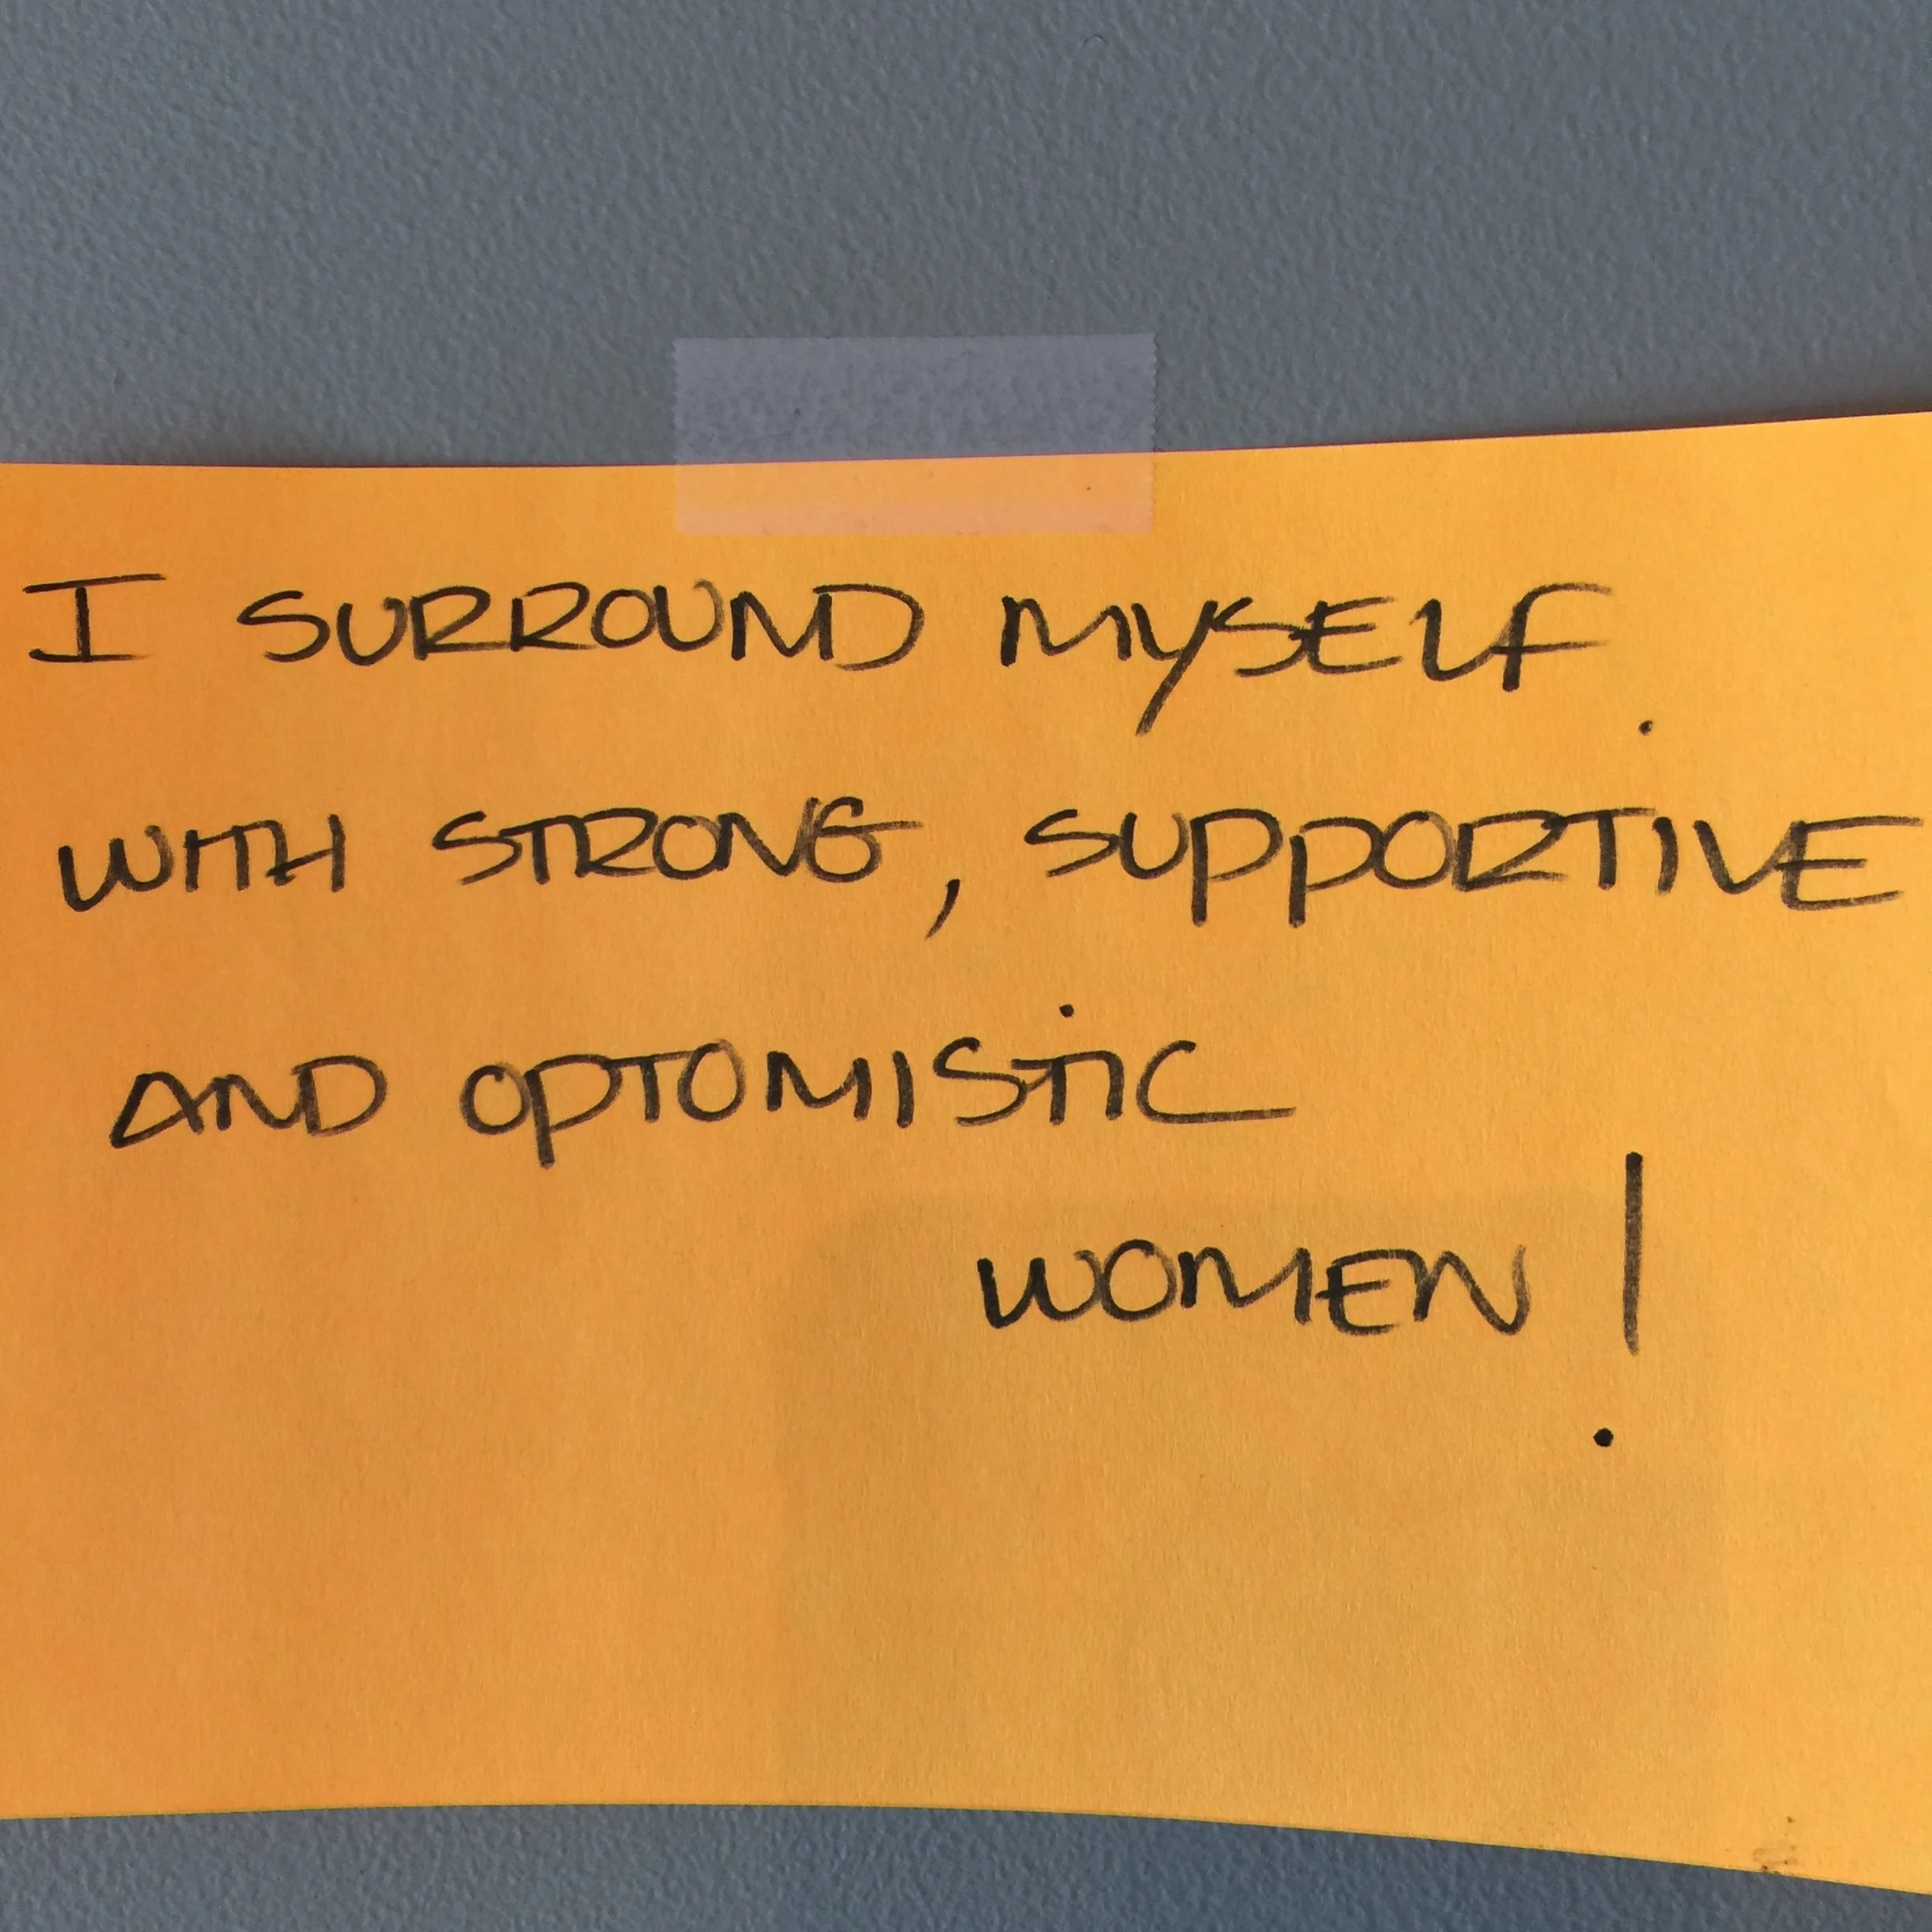 I SURROUND MYSELF
WITH STRONG, SUPPORTIVE
AND OPTOMISTIC
WOMEN!